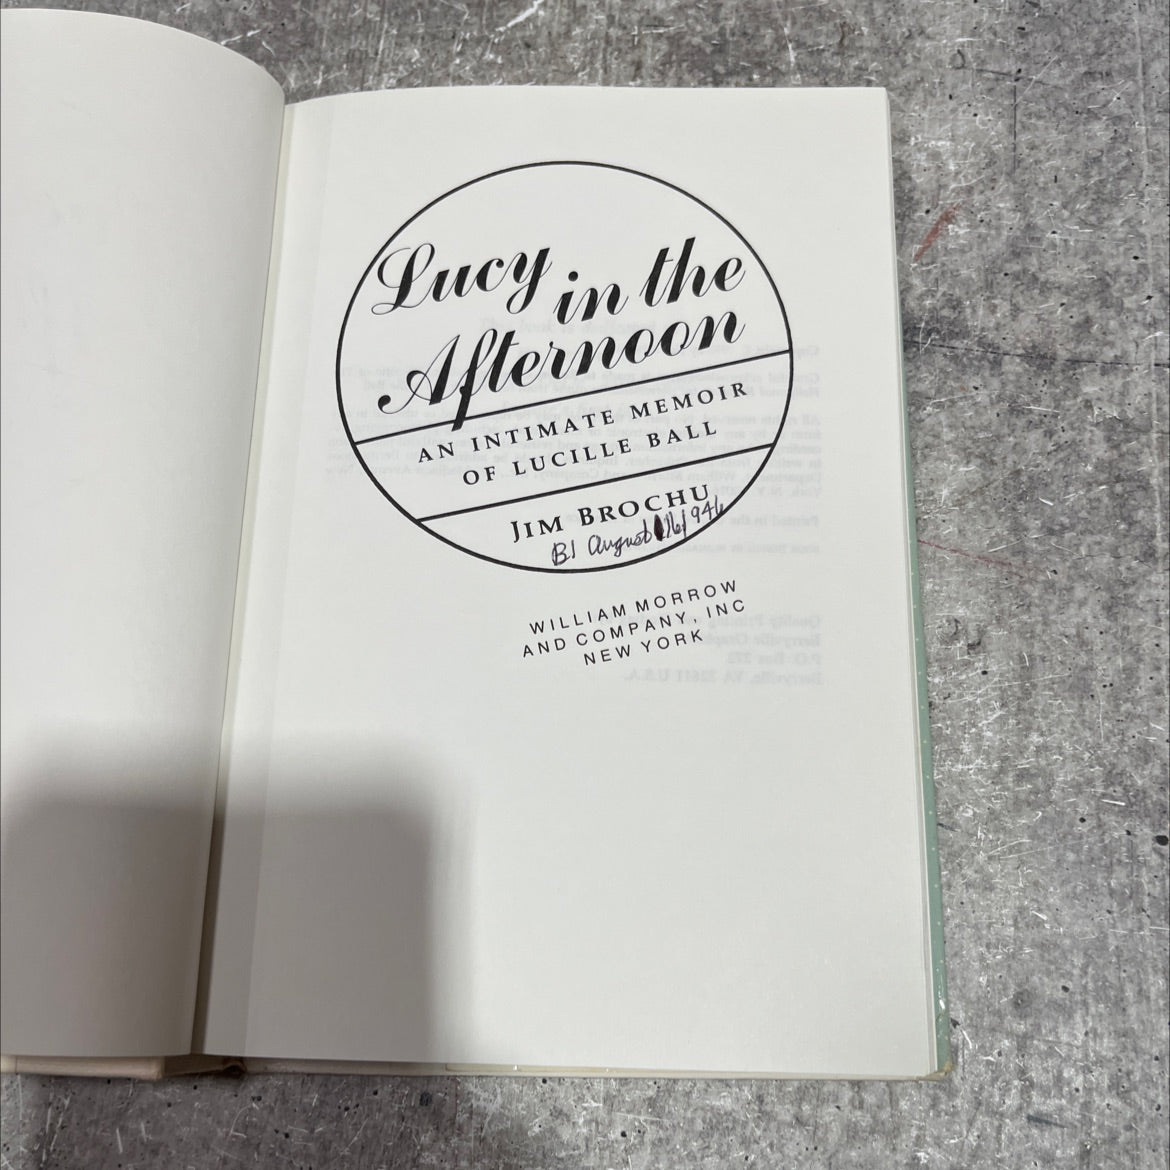 Lucy in the
Afternoon
AN INTIMATE MEMOIR
OF LUCILLE BALL
JIM BROCHU
B.1 August 16/946
WILLIAM MORROW
AND COMPANY, INC
NEW YORK